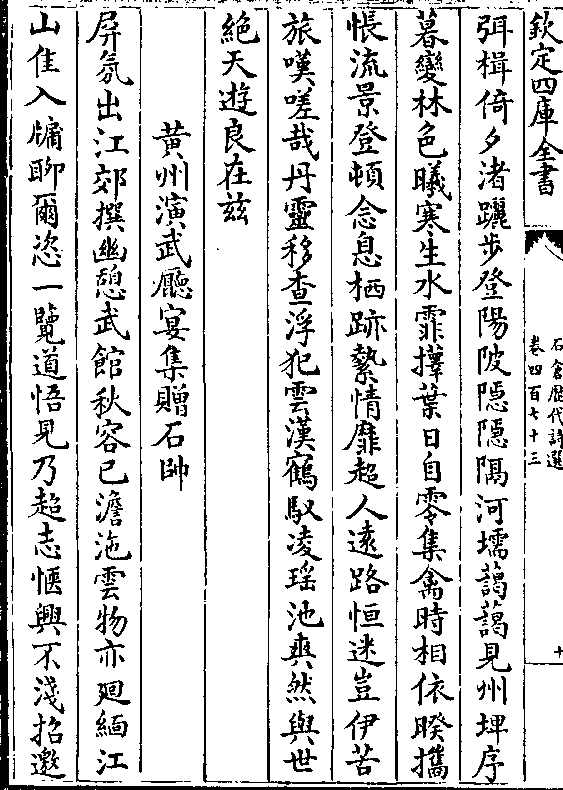 欽定四庫全書
石倉歷代詩選
卷四百七十三
十
弭楫倚夕渚躧步登陽陂隠隠隔河壖藹藹見州埤序
暮變林色曦寒生水霏蘀葉日自零集禽時相依睽攜
悵流景登頓念息栖跡縶情靡超人逺路恒迷豈伊苦
旅嘆嗟哉丹靈移查浮犯雲漢鶴馭凌瑶池爽然與世
絶天遊良在兹
黄州演武廳宴集贈石帥
屏氛出江郊撰幽憩武館秋容已澹沲雲物亦廻緬江
山隹入牗聊爾恣一覽道悟見乃超志愜興不淺招邀